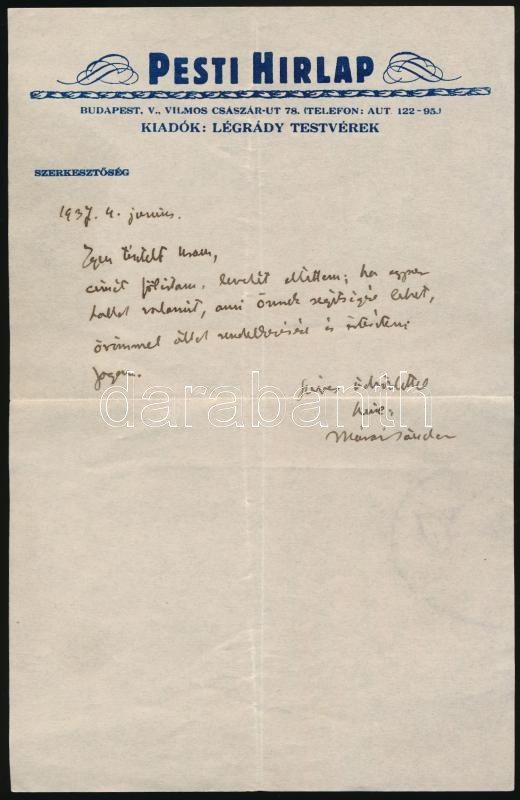 PESTI HIRLAP
BUDAPEST, V., VILMOS CSÁSZÁR-UT 78. (TELEFON: AUT. 122-95.)
KIADÓK: LÉGRÁDY TESTVÉREK
SZERKESZTŐSÉG
1937. 4. junius.
Igen tisztelt Uram,
címét fölírtam, levelét eltettem; ha egyszer
hallok valamit, ami Önnek segítségére lehet,
örömmel állok rendelkezésére és értesíteni
fogom.
Szíves üdvözlettel
híve:
Márai Sándor
darabanth